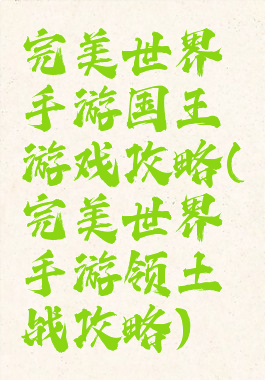 完美世界
手游国王
游戏攻略(
完美世界
手游领土
战攻略)